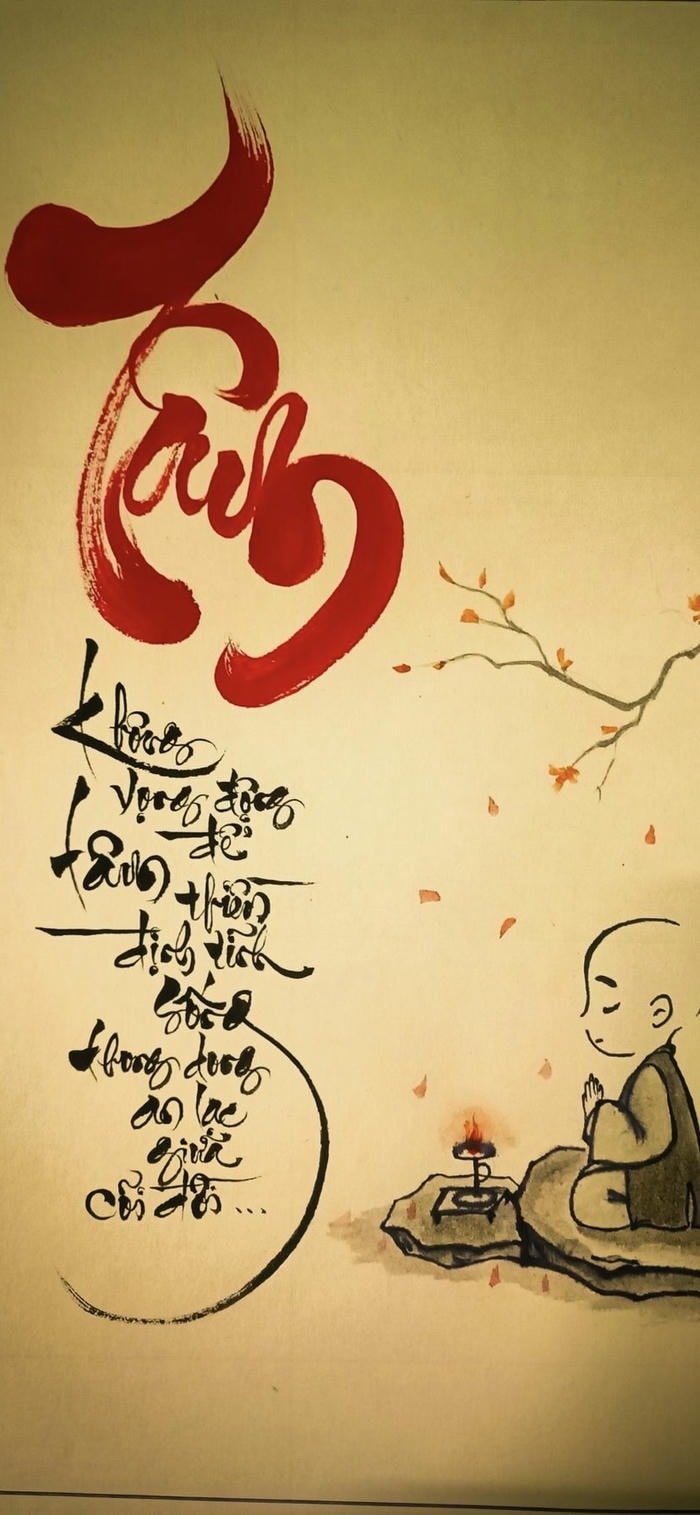 Tâm
Không
vọng động
để
tâm
thiền
định tĩnh
sống
thong dong
an lạc
giữa
cõi đời ...